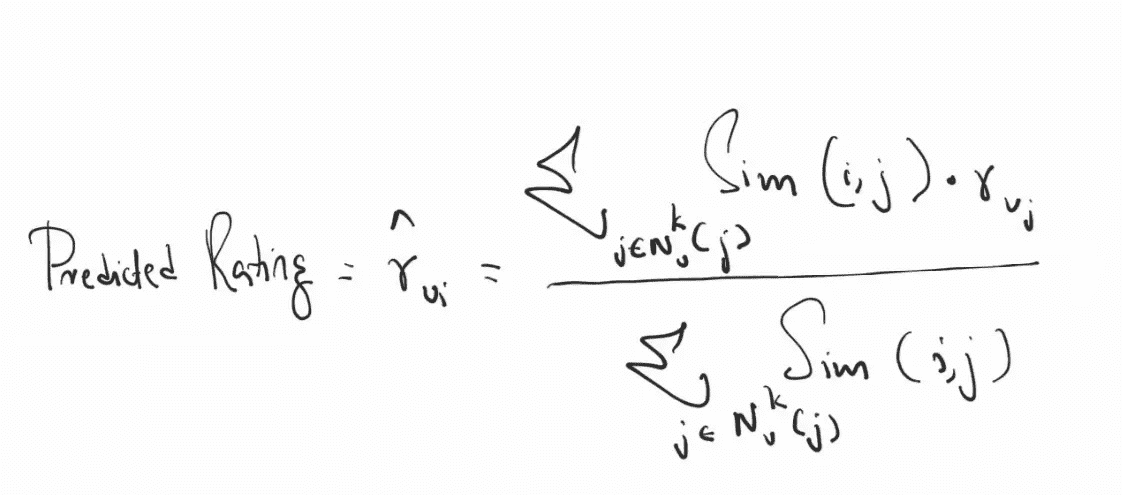 Predicted Rating = r̂_ui = Σ_{j∈N_u^k(j)} Sim (i,j) · r_uj
Σ_{j∈N_u^k(j)} Sim (i,j)